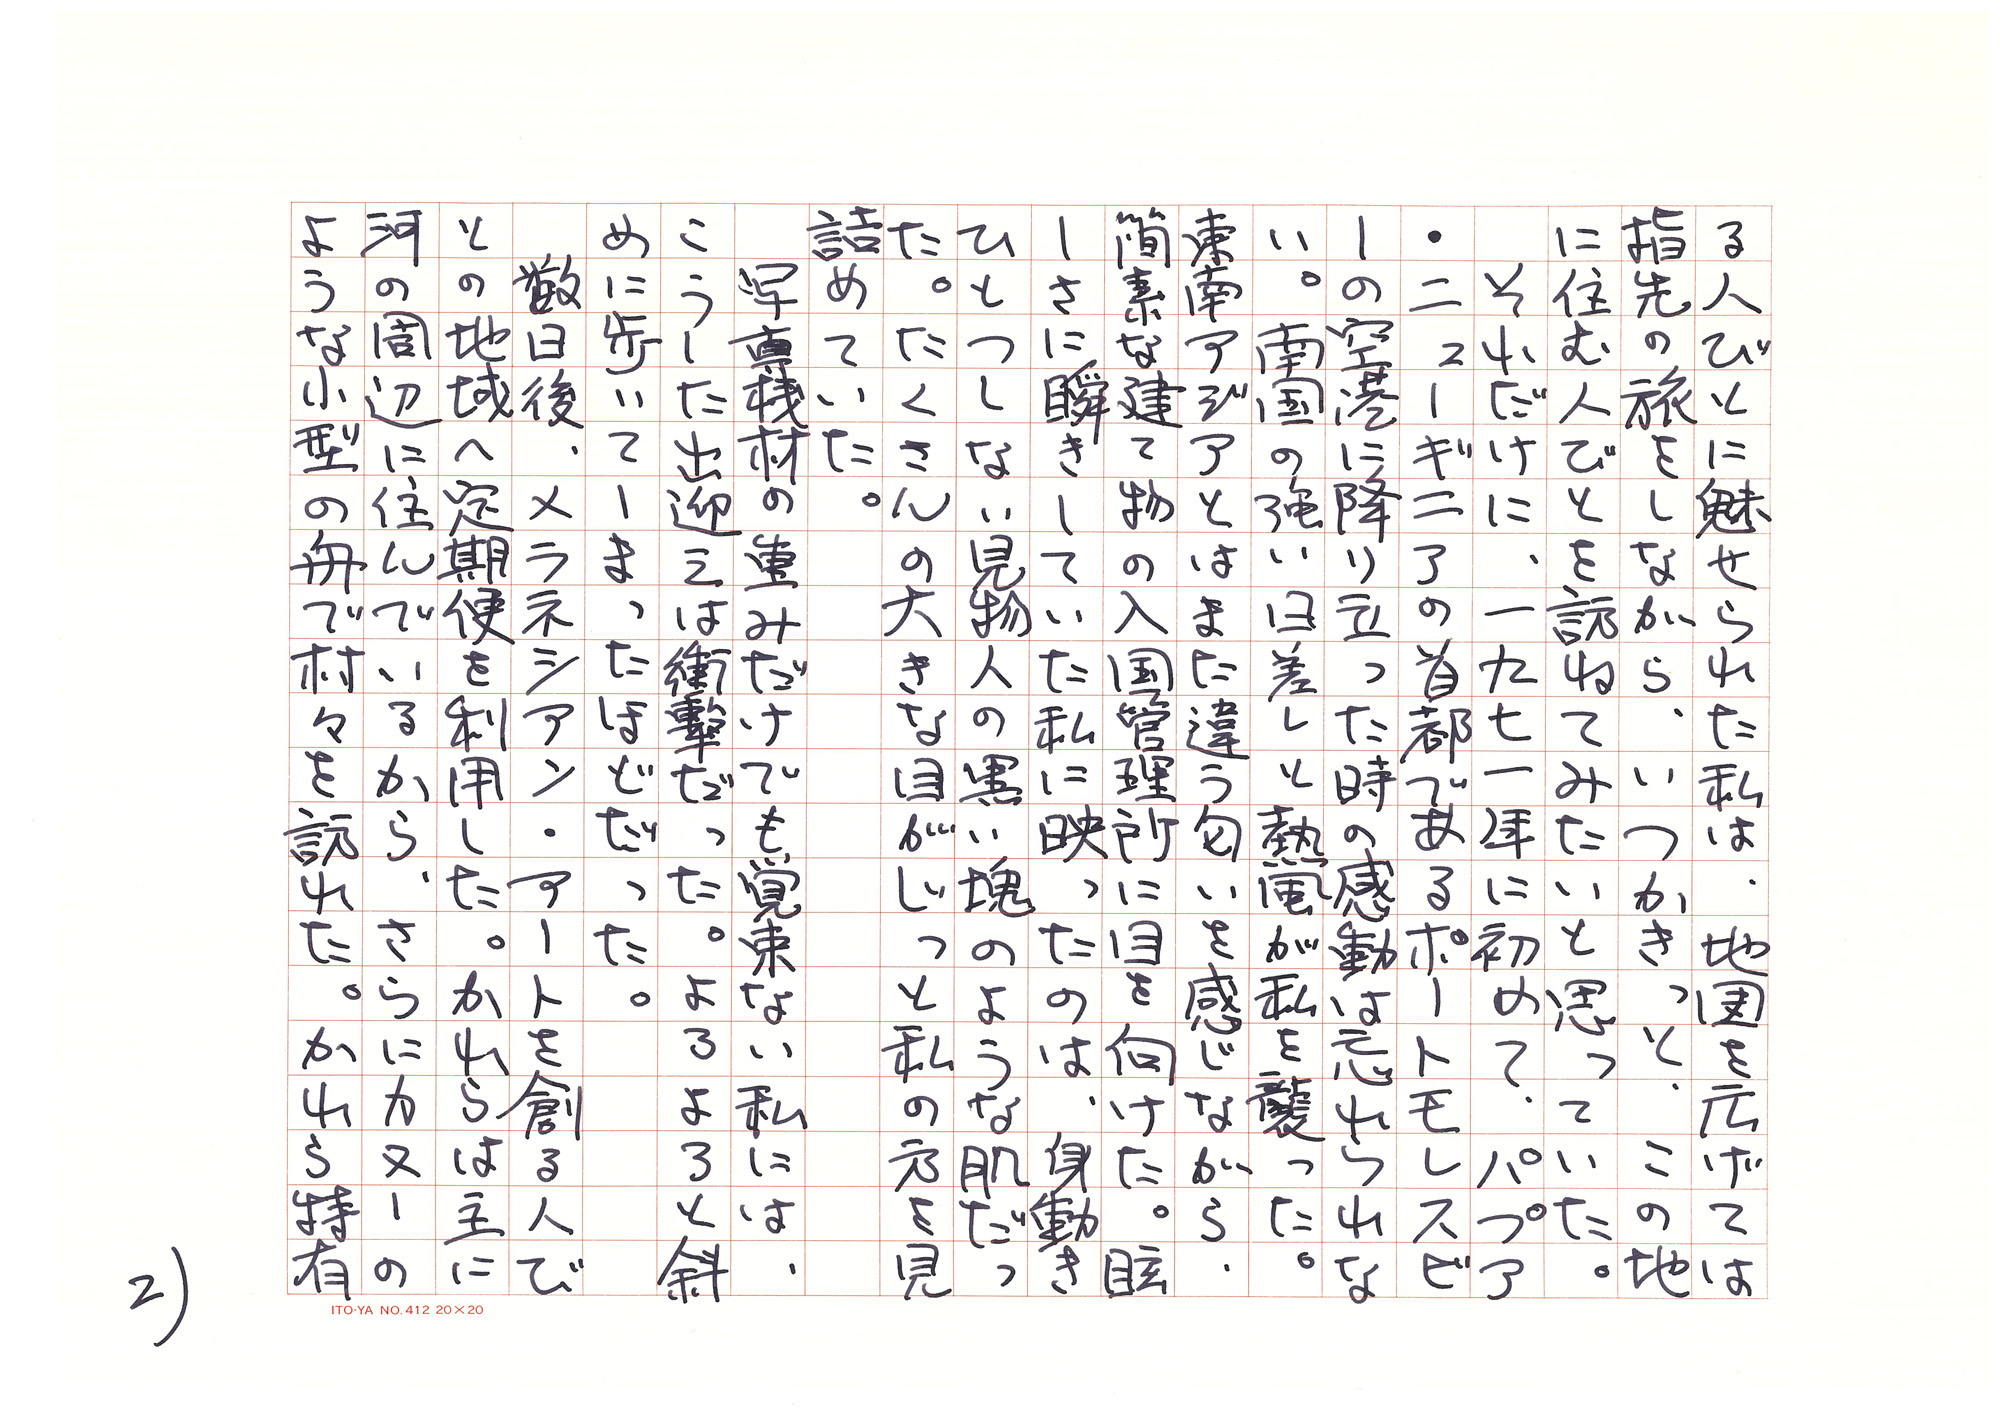 る人びとに魅せられた私は、地図を広げては
指先の旅をしながら、いつかきっと、この地
に住む人びとを訪ねてみたいと思っていた。
それだけに、一九七一年に初めて、パプア
・ニューギニアの首都であるポートモレスビ
ーの空港に降り立った時の感動は忘れられな
い。南国の強い日差しと熱風が私を襲った。
東南アジアとはまた違う匂いを感じながら、
簡素な建て物の入国管理所に目を向けた。眩
しさに瞬きしていた私に映ったのは、身動き
ひとつしない見物人の黒い塊のような肌だっ
た。たくさんの大きな目がじっと私の方を見
詰めていた。
写真機材の重みだけでも覚束ない私には、
こうした出迎えは衝撃だった。よろよろと斜
めに歩いてしまったほどだった。
数日後、メラネシアン・アートを創る人び
との地域へ定期便を利用した。かれらは主に
河の周辺に住んでいるから、さらにカヌーの
ような小型の舟で村々を訪れた。かれら特有
ITO-YA NO.412 20×20
2)